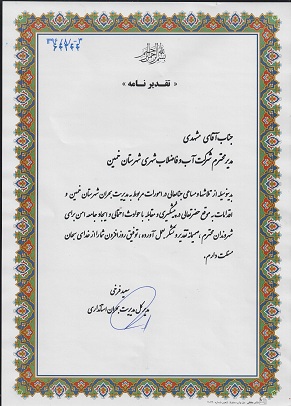 « تقدیر نامه »
جناب آقای مشهدی
مدیر محترم شرکت آب و فاضلاب شهری شهرستان خمین
بدینوسیله از تلاشها و مساعی جنابعالی در امورات مربوط به مدیریت بحران شهرستان خمین و
اقدامات به موقع حضرتعالی در پیشگیری و مقابله با حوادث احتمالی و ایجاد جامعه امن برای
شهروندان محترم، صمیمانه تقدیر و تشکر بعمل آورده، توفیق روزافزون شما را از خدای سبحان
مسئلت دارم.
سعید فرخی
مدیر کل مدیریت بحران استانداری